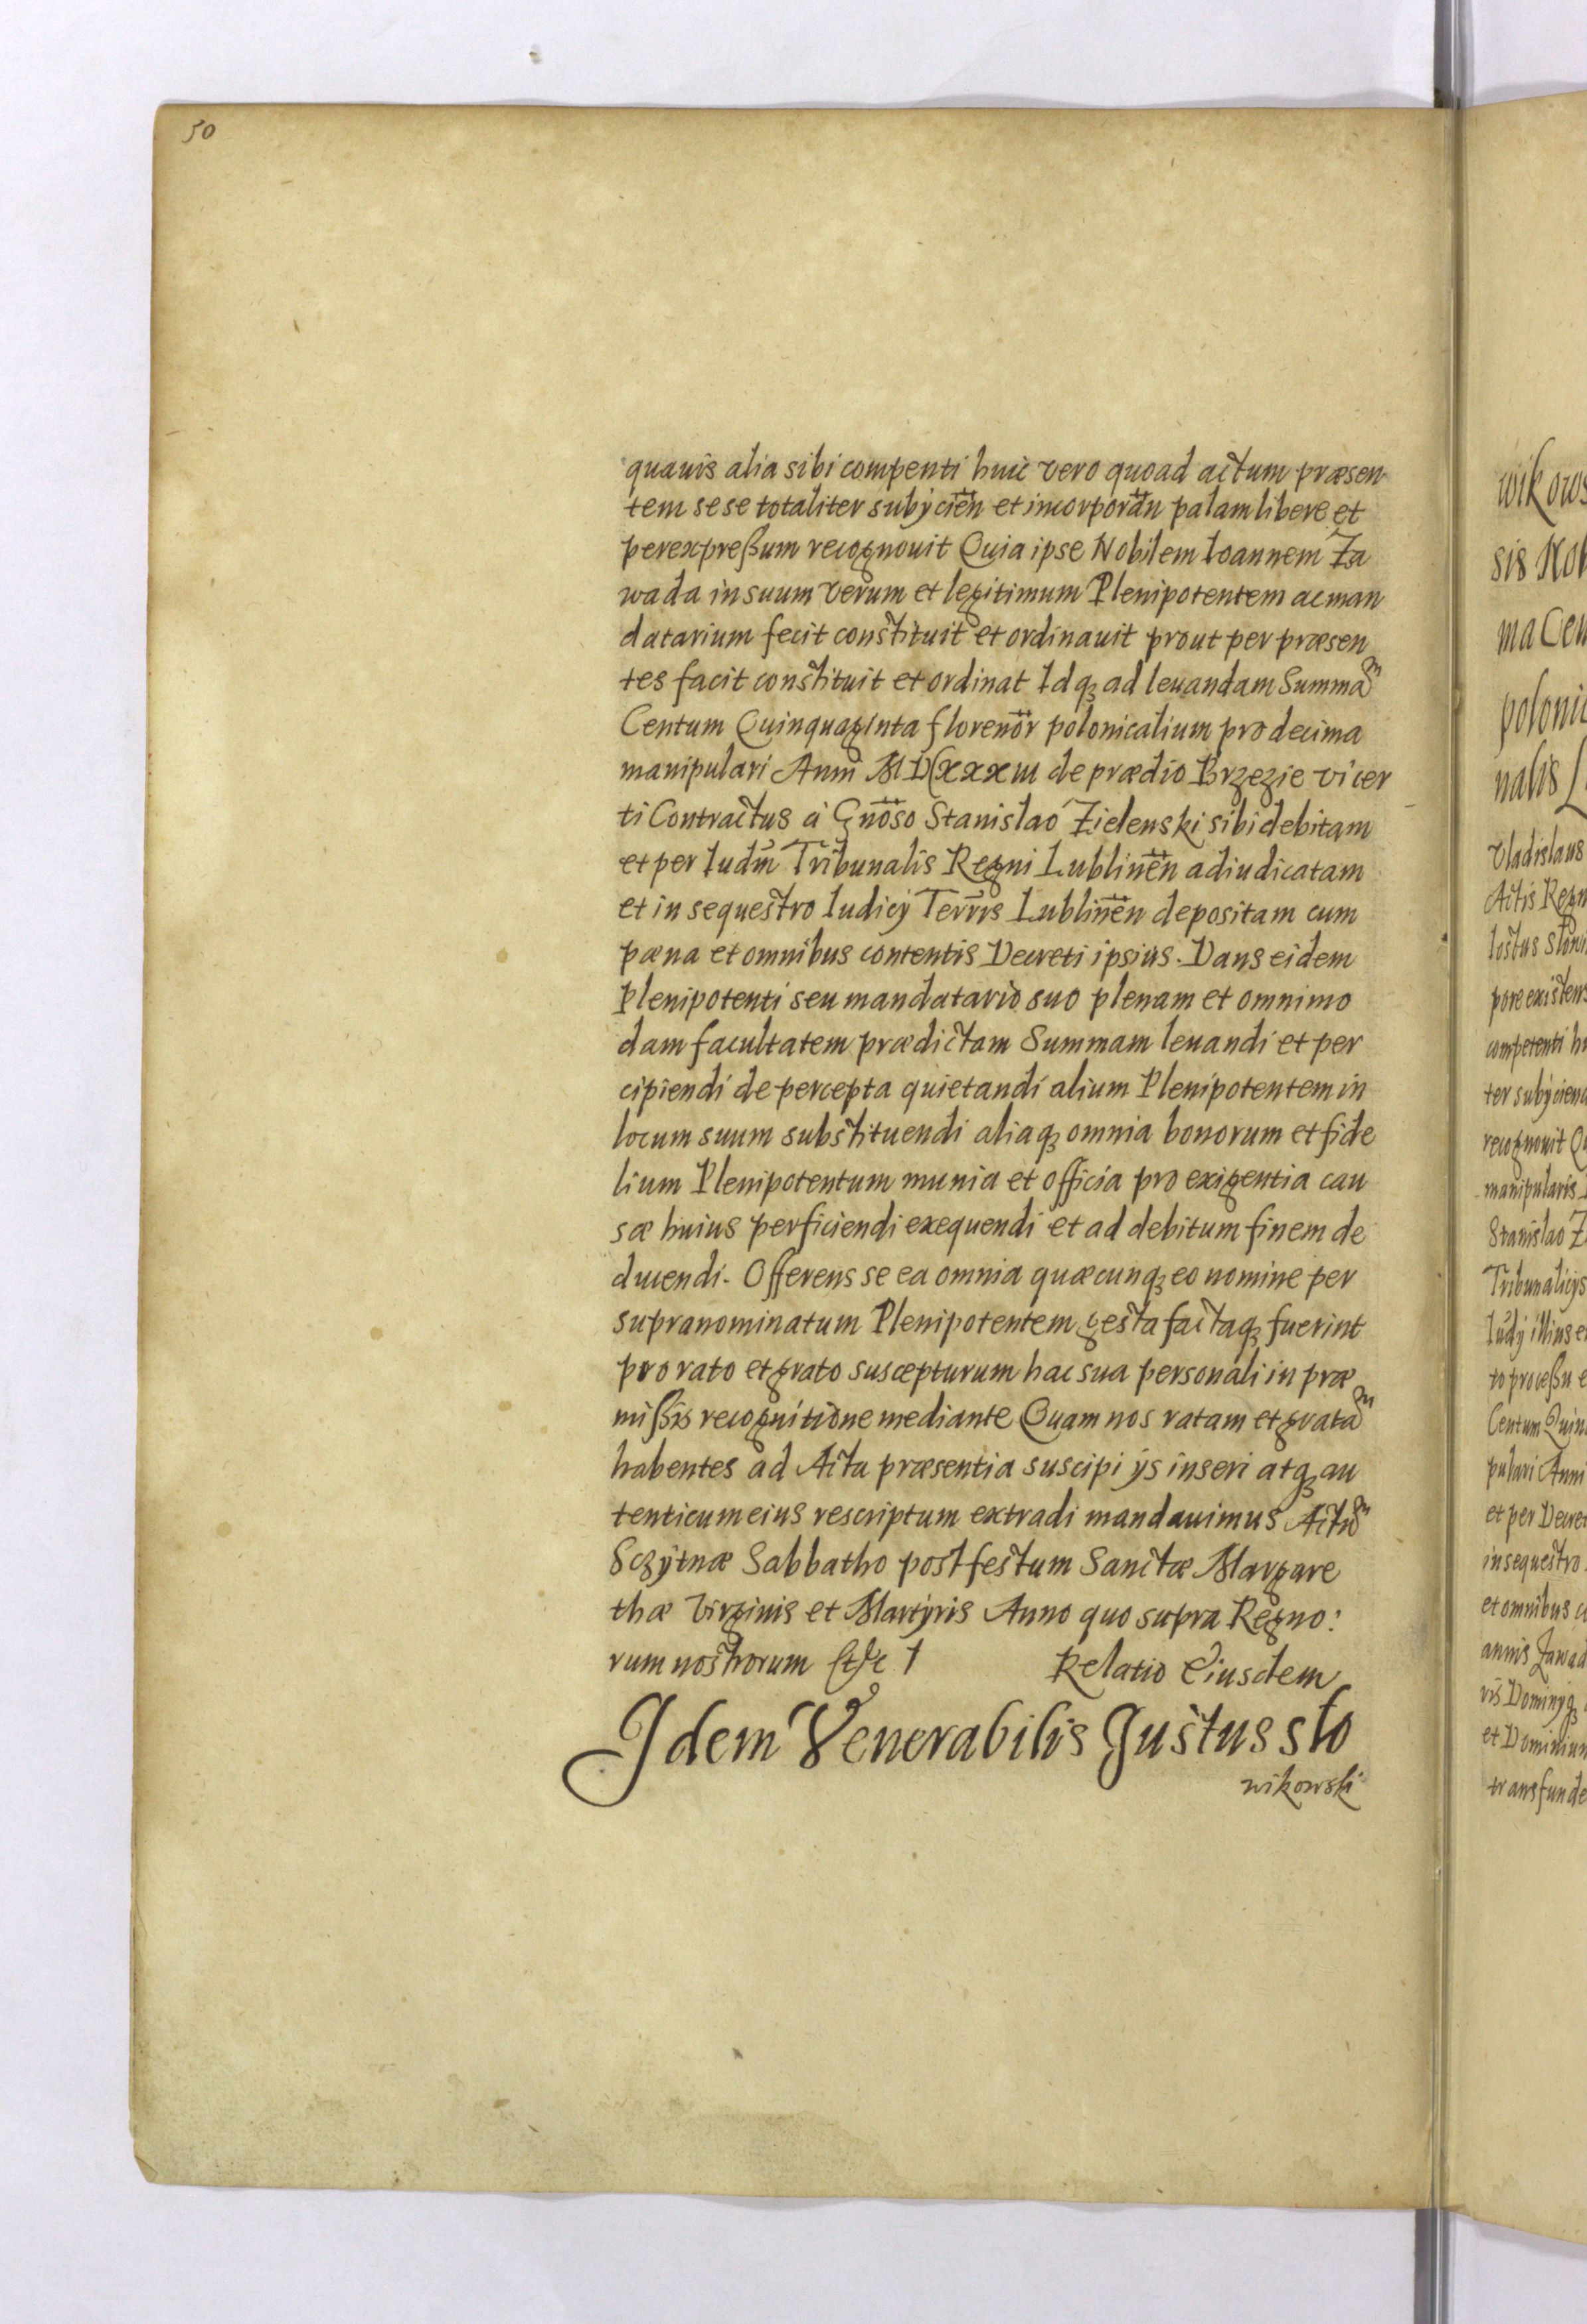 50
quauis alia sibi compenti huic vero quoad actum præsen
tem sese totaliter subÿcien̄ et incorporan̄ palam libere et
perexpreßum recognouit Quia ipse Nobilem Ioannem Za
wada in suum verum et legitimum Plenipotentem ac man
datarium fecit constituit et ordinauit prout per præsen
tes facit constituit et ordinat Idqꝫ ad leuandam Summaᵐ
Centum Quinquaginta florenor̄ polonicalium pro decima
manipulari Anni MDLXXXIII de prædio Brzezie vi cer
ti Contractus à Gnōso Stanislao Zielenski sibi debitam
et per Iudm̄ Tribunalis Regni Lublinen̄ adiudicatam
et in sequestro Iudicÿ Terrr̄s Lublinen̄ depositam cum
pæna et omnibus contentis Decreti ipsius. Dans eidem
Plenipotenti seu mandatario suo plenam et omnimo
dam facultatem prædictam Summam leuandi et per
cipiendi de percepta quietandi alium Plenipotentem in
locum suum substituendi aliaqꝫ omnia bonorum et fide
lium Plenipotentum munia et officia pro exigentia cau
sæ huius perficiendi exequendi et ad debitum finem de
ducendi. Offerens se ea omnia quæcunqꝫ eo nomine per
supranominatum Plenipotentem gesta factaqꝫ fuerint
pro rato et grato suscepturum hac sua personali in præ
mißis recognitione mediante Quam nos ratam et grataᵐ
habentes ad Acta præsentia suscipi ÿs inseri atqꝫ au
tenticum eius rescriptum extradi mandauimus Actuᵐ
Sczÿtnæ Sabbatho post festum Sanctæ Margare
thæ Virginis et Martÿris Anno quo supra Regno:
rum nostrorum Relatio Eiusdem
Idem Venerabilis Justus Slo
wikowski
wikows
sis Nob
ma Cen
polonic
nalis L
Vladislaus
Actis Regn
Iostus Slowi
pore existens
competenti hu
ter subÿciend
recognouit Qu
manipularis
Stanislao Z
Tribunalicÿs
Iudÿ illius e
to proceßu e
Centum Quin
pulari Anni
et per Decret
in sequestro
et omnibus c
annis Zawad
ris Dominÿqꝫ
et Dominium
transfunde